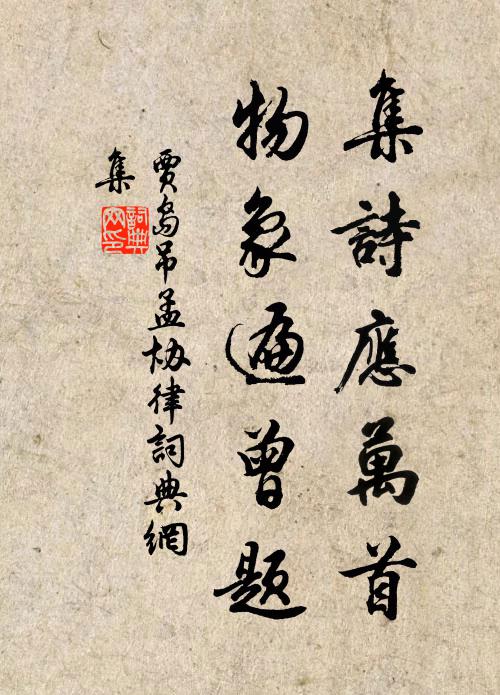 集詩應萬首
物象遍曾題
賈島吊孟協律詞典網
集
詞典
网印